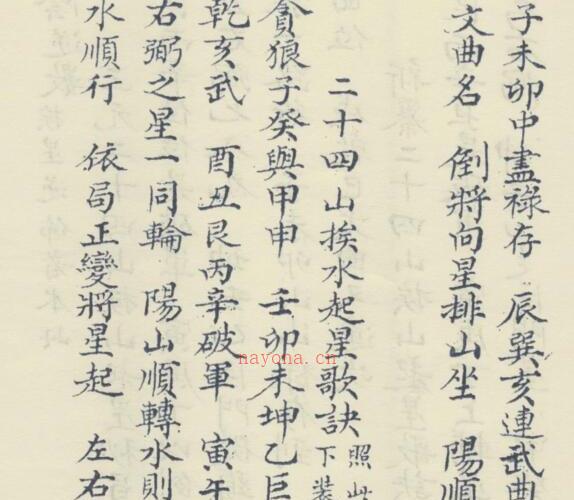 子未卯申盡祿存 辰巽亥連武曲
文曲名 倒將向星排山坐 陽順
二十四山挨水起星歌訣 照此
下裝
貪狼子癸與甲申 壬卯未坤乙巨
乾亥武 酉丑艮丙辛破軍 寅午
右弼之星一同輪 陽山順轉水則
水順行 依局正變將星起 左右
nayona.cn